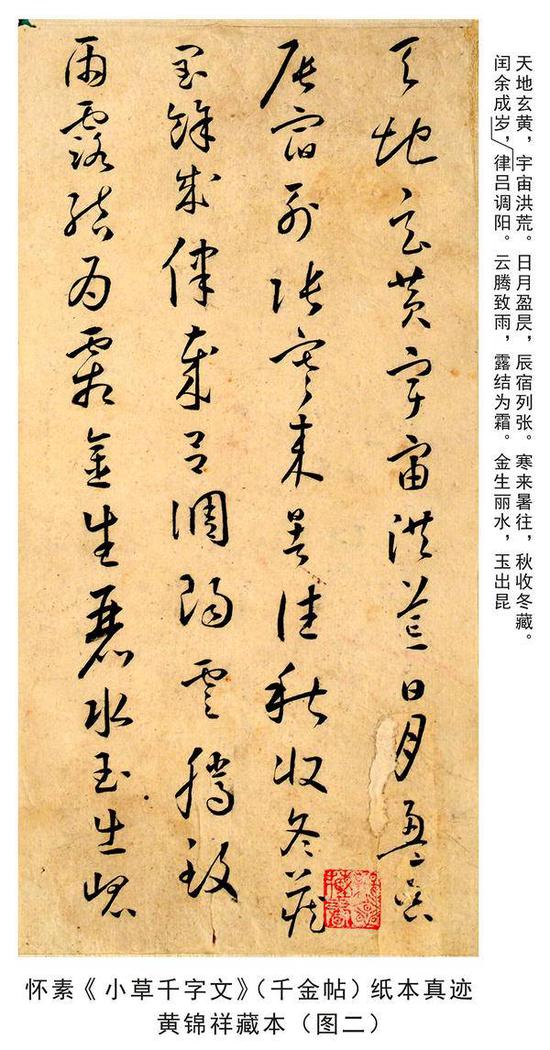 天地玄黄，宇宙洪荒。日月盈昃，辰宿列张。寒来暑往，秋收冬藏。
闰余成岁，律吕调阳。云腾致雨，露结为霜。金生丽水，玉出昆
天地玄黃宇宙洪荒日月盈昃
辰宿列張寒來暑往秋收冬藏
閏餘成律歲呂調陽雲騰致
雨露結為霜金生麗水玉出崐
怀素《小草千字文》（千金帖）纸本真迹
黄锦祥藏本（图二）